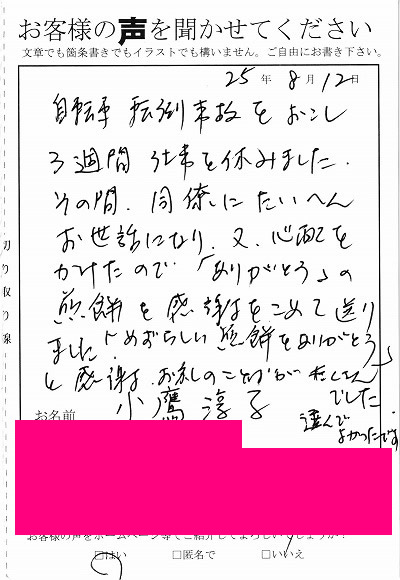 お客様の声を聞かせてください
文章でも箇条書きでもイラストでも構いません。ご自由にお書き下さい。
25年8月12日
自転車転倒事故をおこし
3週間仕事を休みました.
その間、同僚にたいへん
お世話になり、又、心配を
かけたので「ありがとう」の
煎餅を感謝をこめて送り
ました「めずらしい煎餅をありがとう」
と感謝、お礼のことばがたくさん
でした
選んで
よかったです.
お名前
小鷹淳子
お客様の声をホームページ等でご紹介してよろしいでしょうか?
□はい □匿名で □いいえ
切り取り線